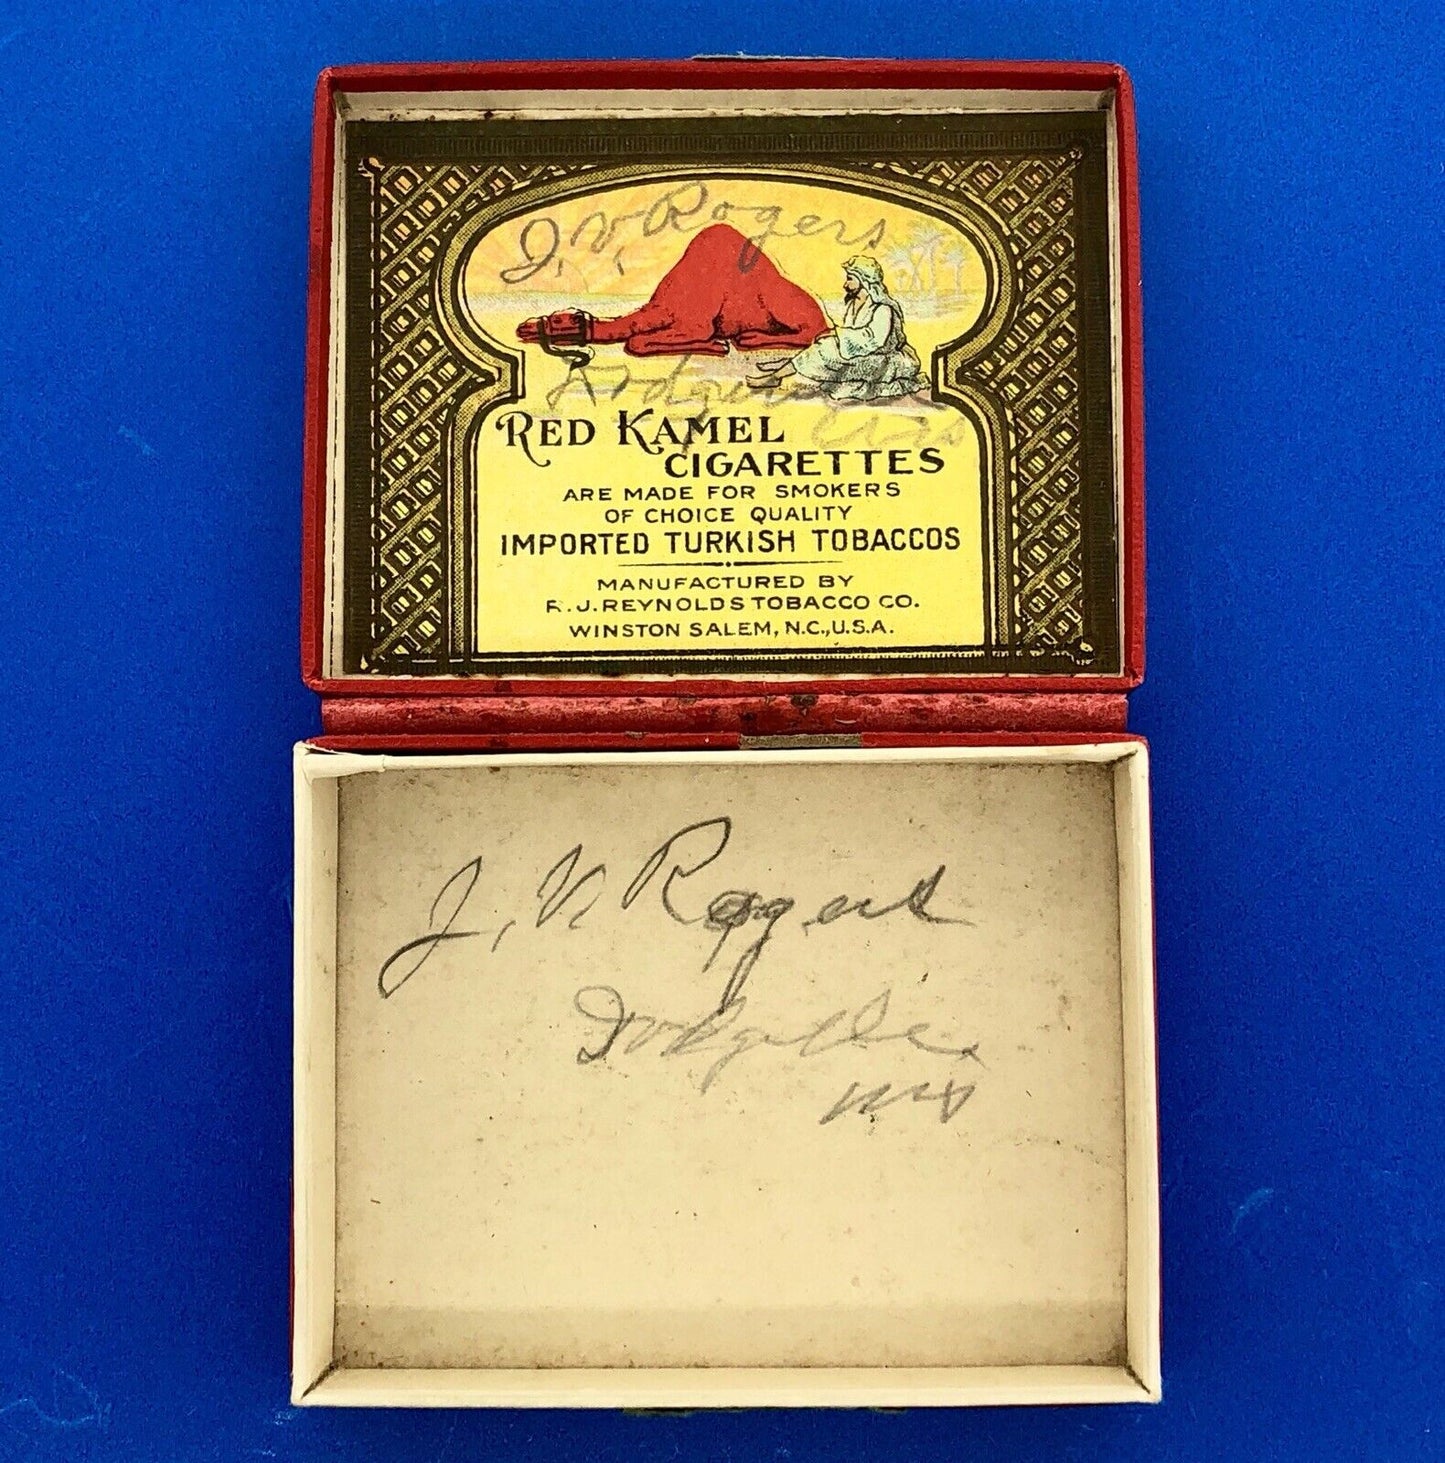 J. V. Rogers
RED KAMEL
CIGARETTES
ARE MADE FOR SMOKERS
OF CHOICE QUALITY
IMPORTED TURKISH TOBACCOS
MANUFACTURED BY
R.J. REYNOLDS TOBACCO CO.
WINSTON SALEM, N.C., U.S.A.
J. V. Rogers